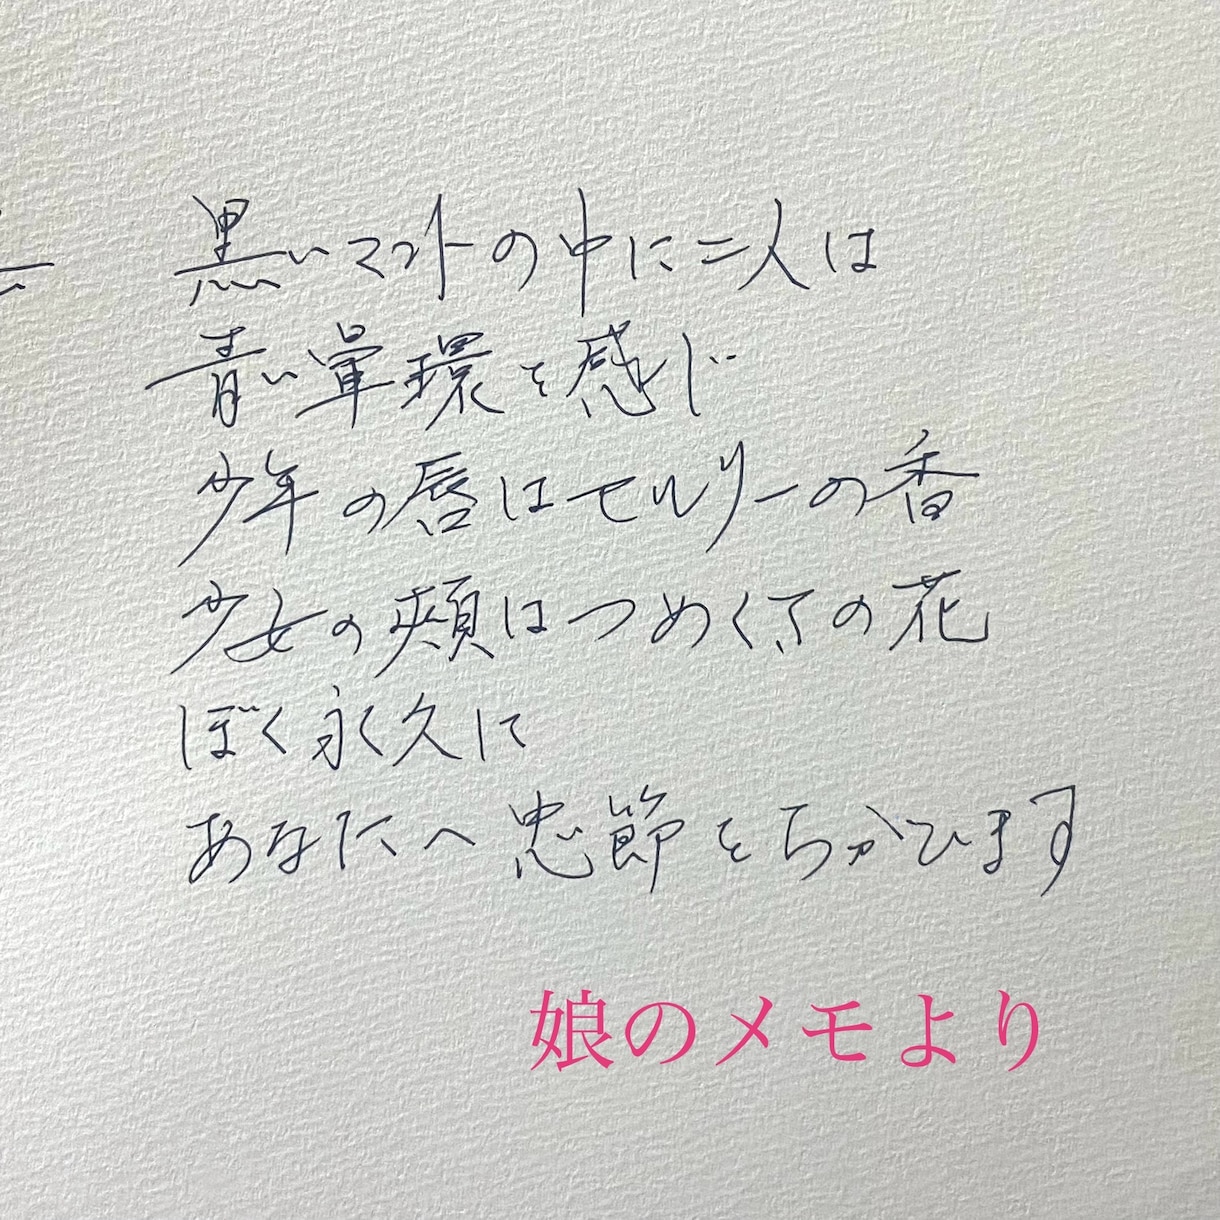 黒いマントの中に二人は
青い暈環を感じ
少年の唇はセルリーの香
少女の頬はつめくさの花
ぼく永久に
あなたへ忠節をちかひます
娘のメモより